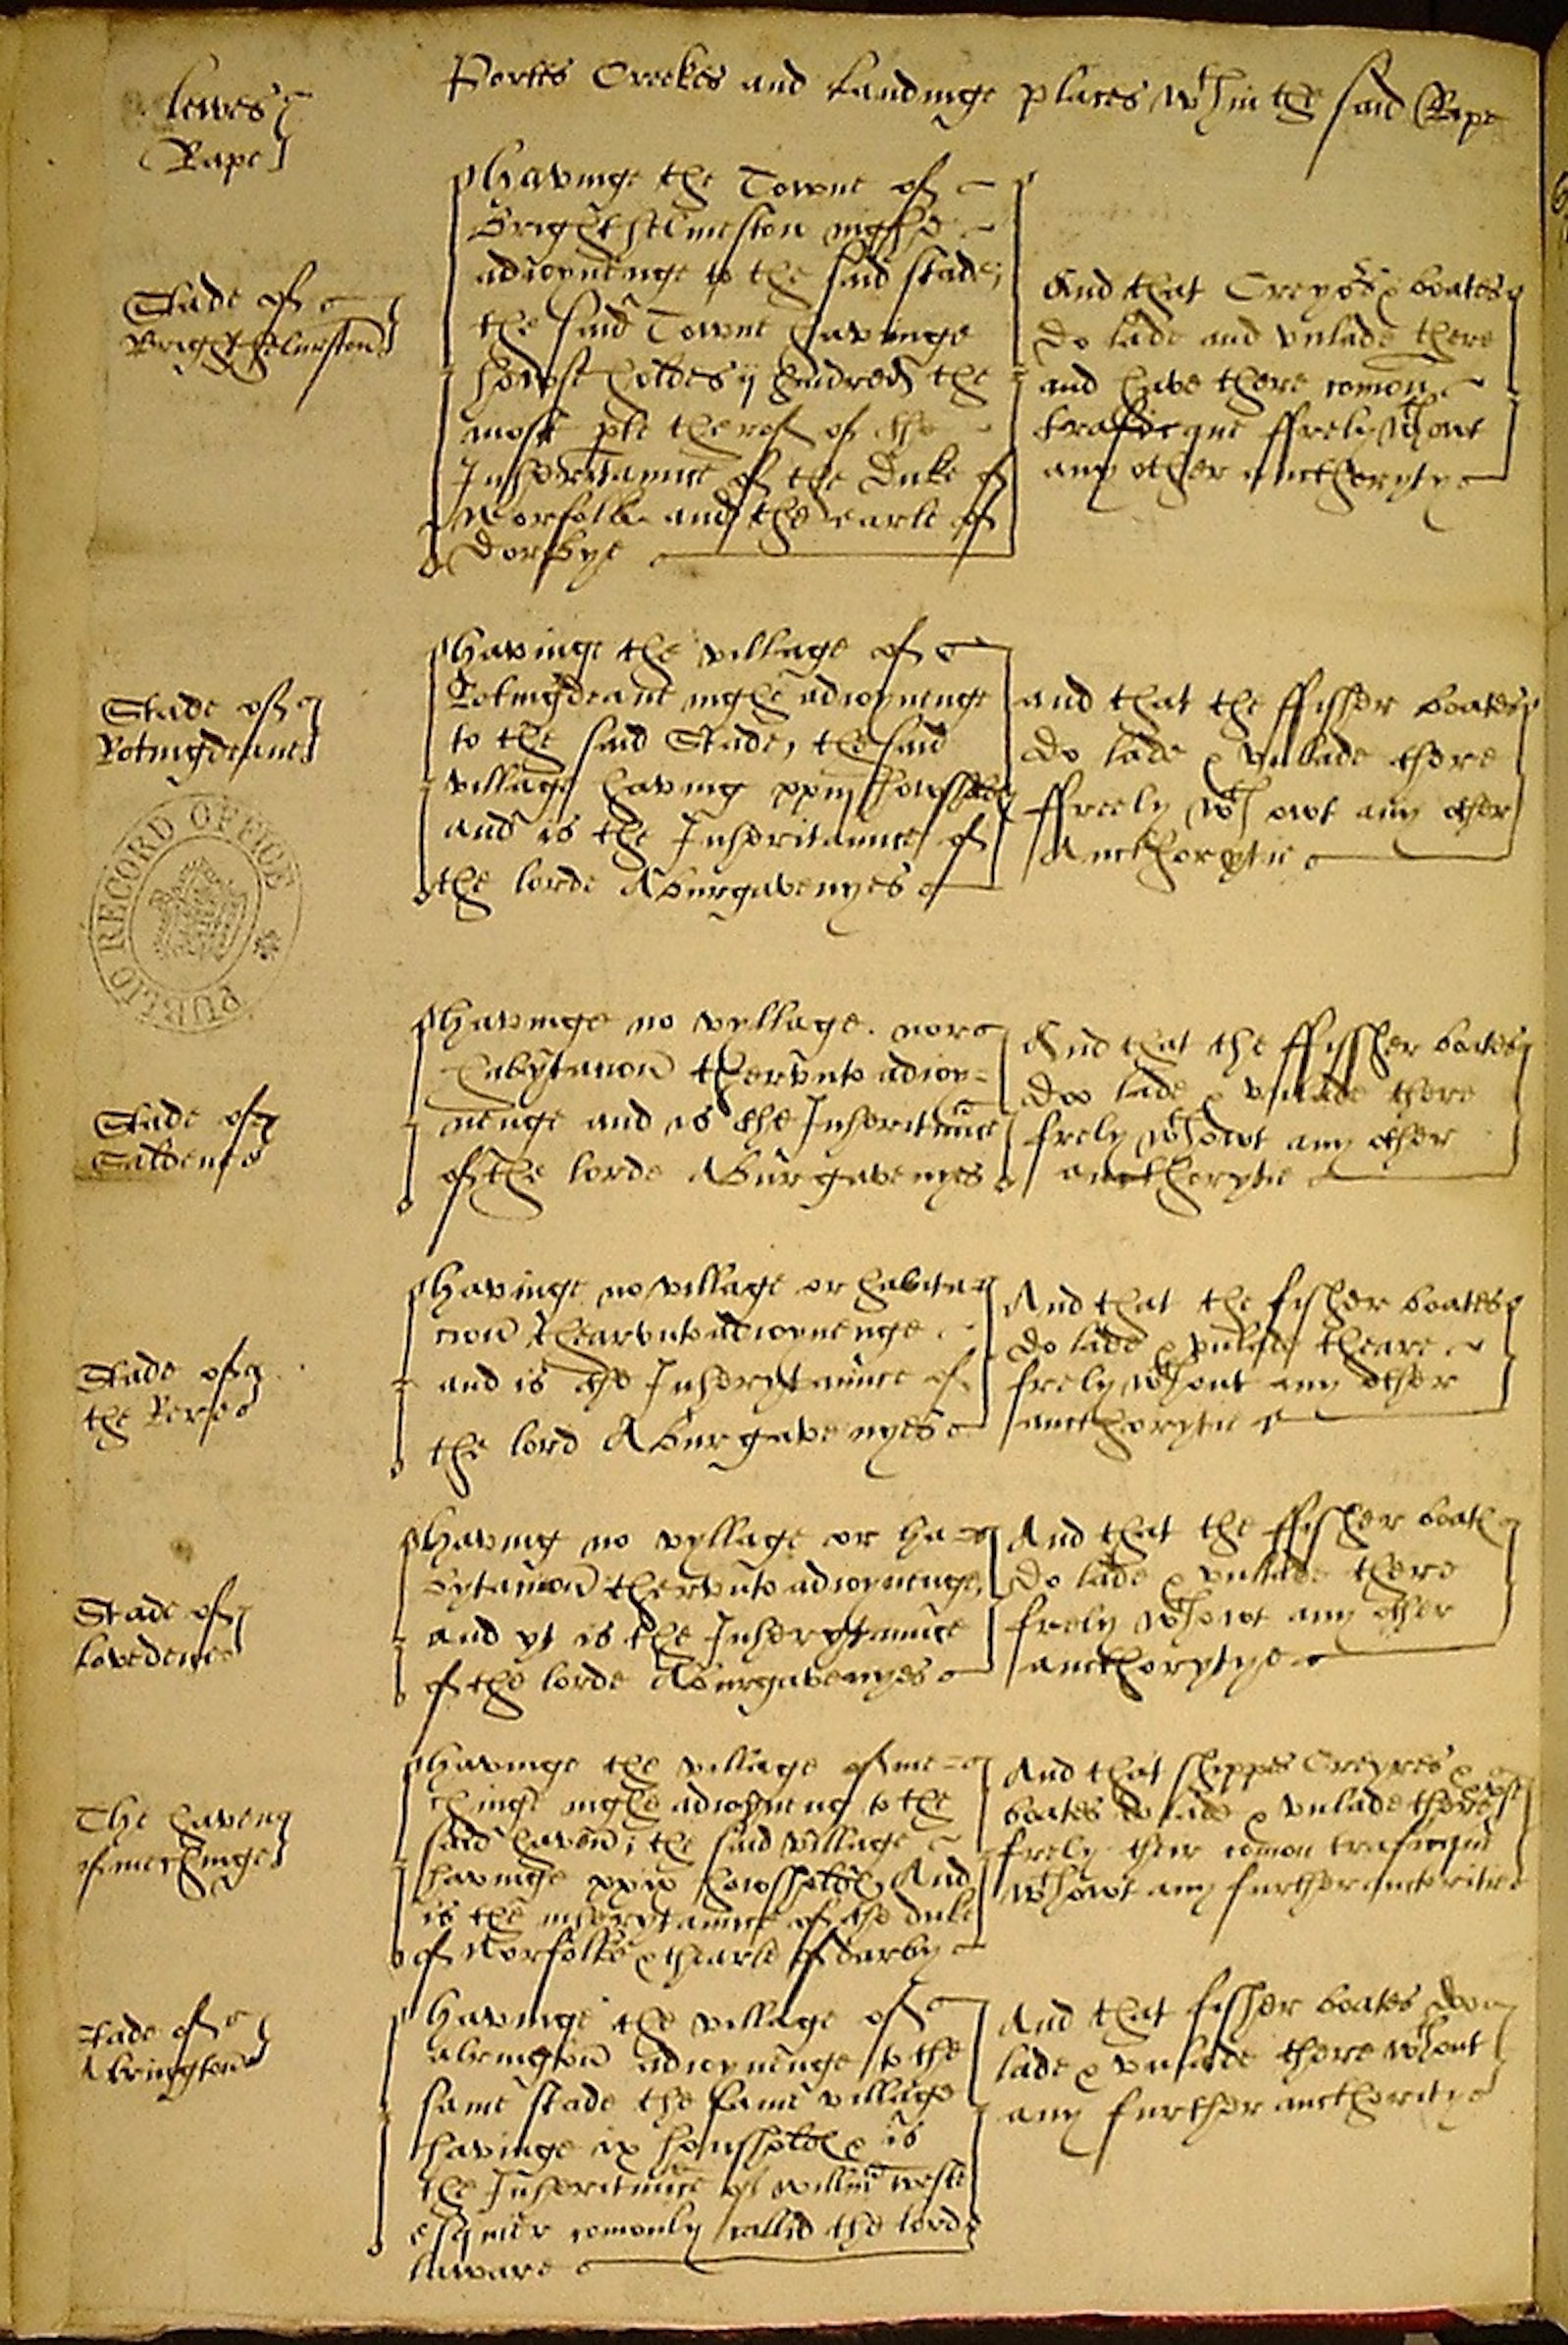 lewes
Rape
Portes Creekes and Landinge places wthin the said Rape
Stade of
Brighthelmston
havinge the Towne of
Brighthelmeston nighe
adioynenge to the said stade,
the said Towne havinge
howseholdes ij hundred the
most pte therof of the
Inherytaunce of the Duke of
Norfolke and the earle of
Dorbye
And that Creyers & boates
do lade and vnlade there
and have there comon
traficque ffrely wthout
any other aucthorytye
Stade of
Rotingdeane
havinge the village of
Rotingdeane nighe adioynenge
to the said Stade, the said
village having xxiiij howsholdes
and is the Inheritaunce of
the lorde Aburgavenyes
and that the ffissher boates
do lade & vnlade there
ffreely wthowt any other
Aucthorytie
PUBLIC RECORD OFFICE
Stade of
Saltdene
havinge no vyllage nor
habytacion thervnto adioy-
nenge and is the Inheritaunce
of the lorde Aburgavenyes
And that the ffyssher boates
doo lade & vnlade there
frely wthowt any other
aucthorytie
Stade of
the
havinge no village or habita
cion thearvnto adioynenge
and is the Inherytaunce of
the lord Aburgavenyes
And that the fissher boates
do lade & vnlade theare
frely wthout any other
aucthorytie
Stade of
Lovedene
having no vyllage or ha-
bytacion thervnto adioynenge,
and yt is the Inherytaunce
of the lorde Aburgavenyes
And that the ffissher boates
do lade & vnlade there
frely wthowt any other
aucthorytye
The haven
of mechinge
havinge the village of me-
chinge nighe adioyneng to the
said haven, the said village
havinge howsholdes And
is the inherytaunce of the duke
of Norfolke & thearle of darby
And that shippes Creyres &
boates do lade & vnlade there
frely their comon traficque
wthowt any further auctoritie
Stade of
Abrington
havinge the village of
abrington adioynenge to the
same stade the same village
havinge ix housholdes & is
the Inheritaunce of willm weste
esquier comonly callid the lord
laware
And that fissher boates doo
lade & vnlade there wthout
any further aucthoritye